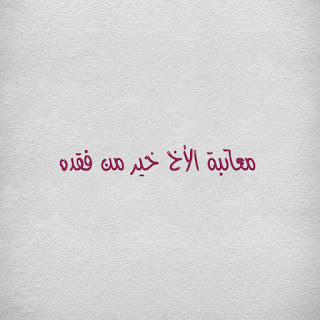 معاتبة الأخ خير من فقده